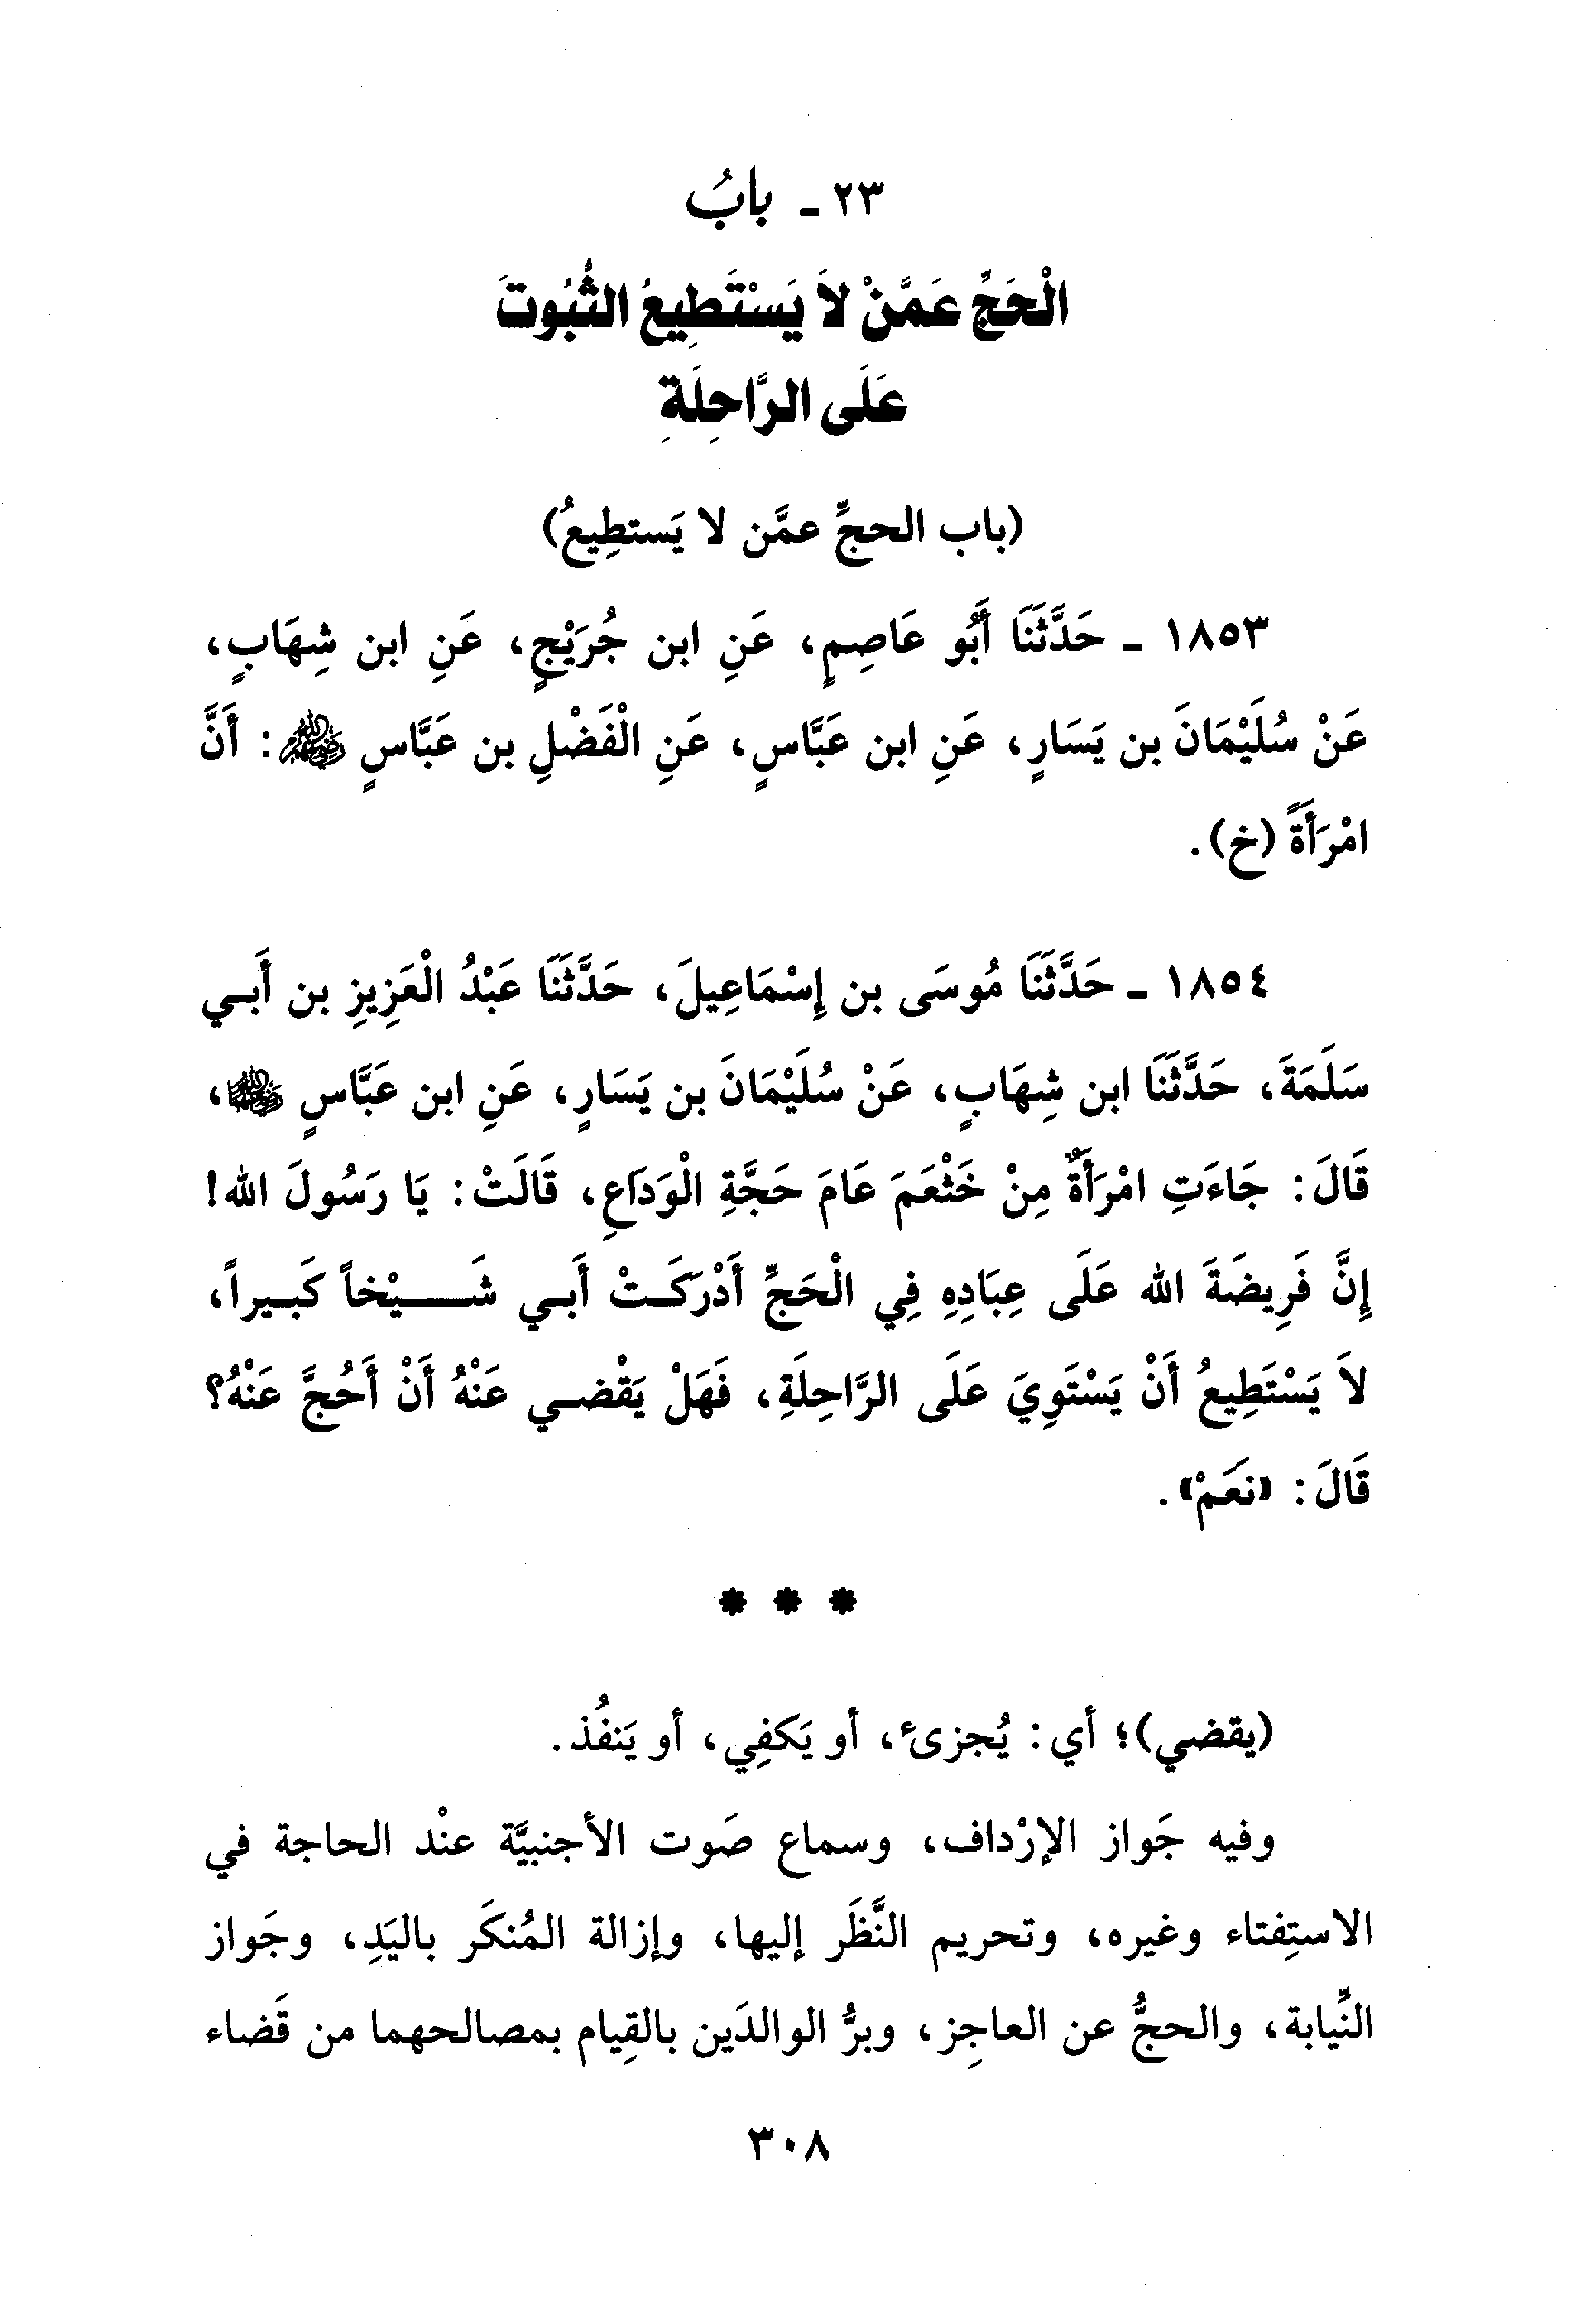 ٢٣ - بابُ
الْحَجِّ عَمَّنْ لاَ يَسْتَطِيعُ الثُّبُوتَ
عَلَى الرَّاحِلَةِ
(باب الحجِّ عمَّن لا يَستطِيعُ)
١٨٥٣ - حَدَّثَنَا أَبُو عَاصِمٍ، عَنِ ابن جُرَيْجٍ، عَنِ ابن شِهَابٍ،
عَنْ سُلَيْمَانَ بن يَسَارٍ، عَنِ ابن عَبَّاسٍ، عَنِ الْفَضْلِ بن عَبَّاسٍ ﵃: أَنَّ
امْرَأَةً (خ).
١٨٥٤ - حَدَّثَنَا مُوسَى بن إِسْمَاعِيلَ، حَدَّثَنَا عَبْدُ الْعَزِيزِ بن أَبي
سَلَمَةَ، حَدَّثَنَا ابن شِهَابٍ، عَنْ سُلَيْمَانَ بن يَسَارٍ، عَنِ ابن عَبَّاسٍ ﵄،
قَالَ: جَاءَتِ امْرَأَةٌ مِنْ خَثْعَمَ عَامَ حَجَّةِ الْوَدَاعِ، قَالَتْ: يَا رَسُولَ الله!
إِنَّ فَرِيضَةَ الله عَلَى عِبَادِهِ فِي الْحَجِّ أَدْرَكَتْ أَبي شَيْخاً كَبيراً،
لاَ يَسْتَطِيعُ أَنْ يَسْتَوِيَ عَلَى الرَّاحِلَةِ، فَهَلْ يَقْضي عَنْهُ أَنْ أَحُجَّ عَنْهُ؟
قَالَ: «نَعَمْ».
* * *
(يقضي)؛ أي: يُجزئ، أو يَكفِي، أو يَنفُذ.
وفيه جَواز الإرْداف، وسماع صَوت الأجنبيَّة عنْد الحاجة في
الاستِفتاء وغيره، وتحريم النَّظَر إليها، وإزالة المُنكَر باليَدِ، وجَواز
النِّيابة، والحجُّ عن العاجِز، وبرُّ الوالدَين بالقِيام بمصالحهما من قَضاء
٣٠٨